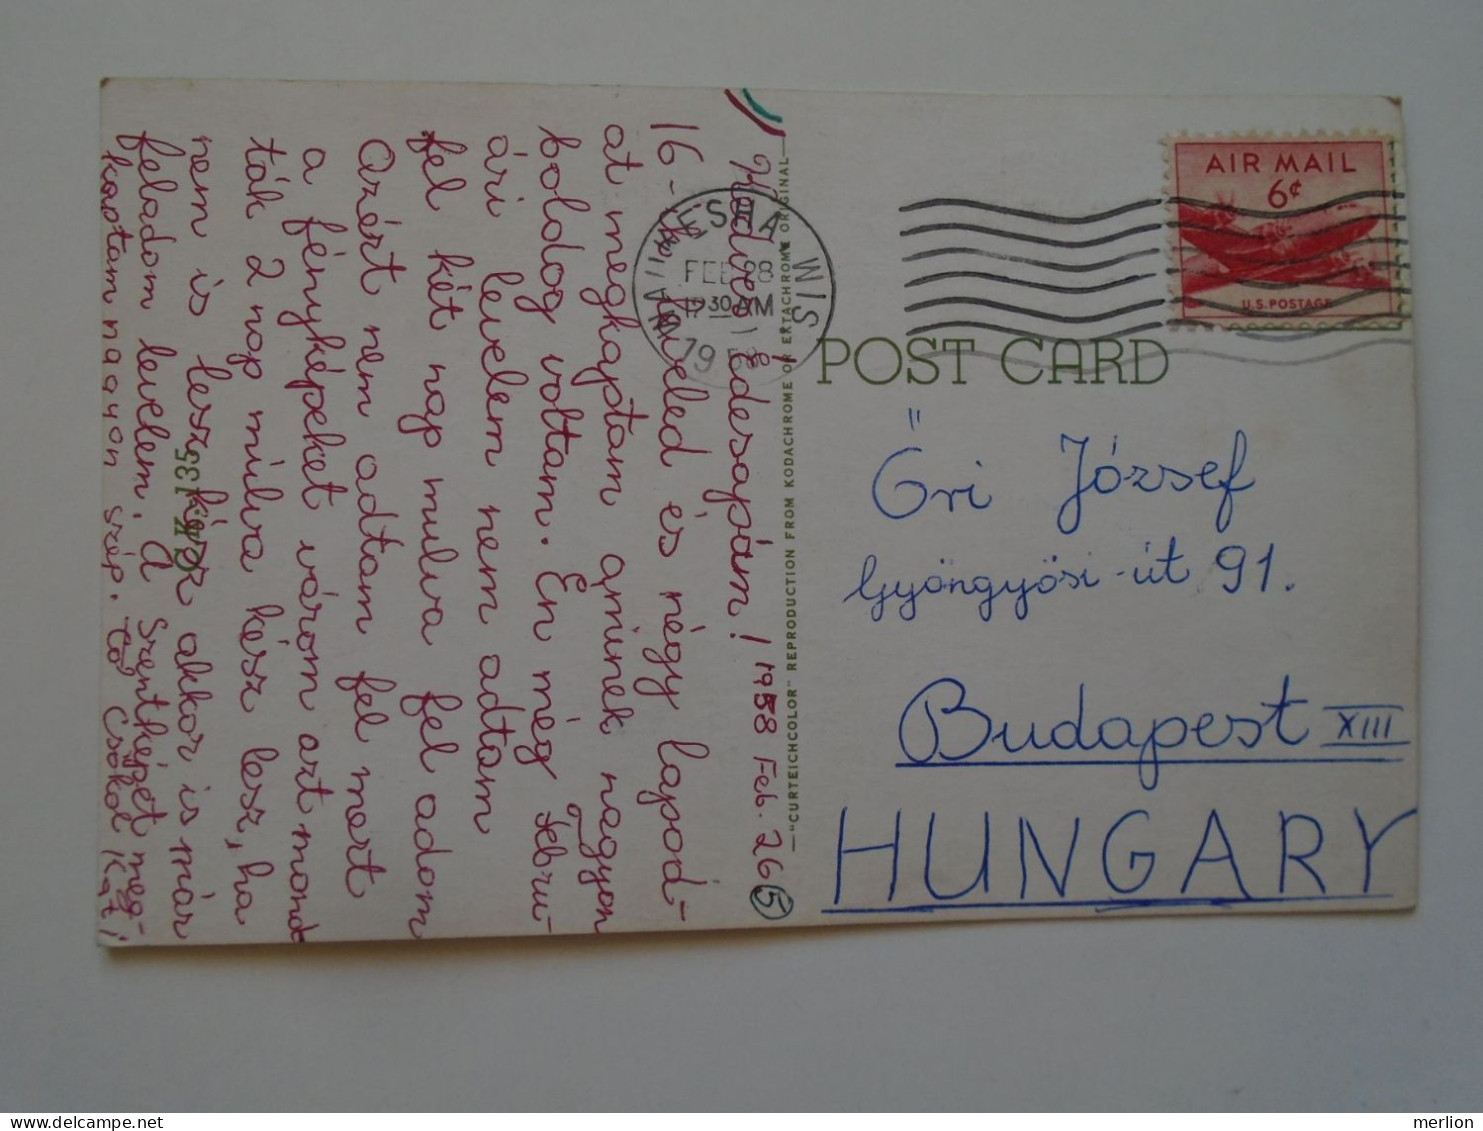 Kedves Édesapám! 1958 Feb. 26 5
16-ik leveled és négy lapod-
at megkaptam aminek nagyon
boldog voltam. Én még a febru-
ári levelem nem adtam
fel két nap mulva fel adom
Azért nem adtam fel mert
a fényképeket várom azt mond
ták 2 nap múlva kész lesz, ha
nem is lesz kész akkor is már
feladom levelem. A Szentképet meg-
kaptam nagyon szép. Csókol Kati
6K-135
—"CURTEICHCOLOR" REPRODUCTION FROM KODACHROME OR EKTACHROME ORIGINAL—
WAUKESHA WIS
FEB 28
930 AM
1958
AIR MAIL
6¢
U.S. POSTAGE
POST CARD
Őri József
Gyöngyösi-út 91.
Budapest XIII
HUNGARY
delcampe.net
merlion